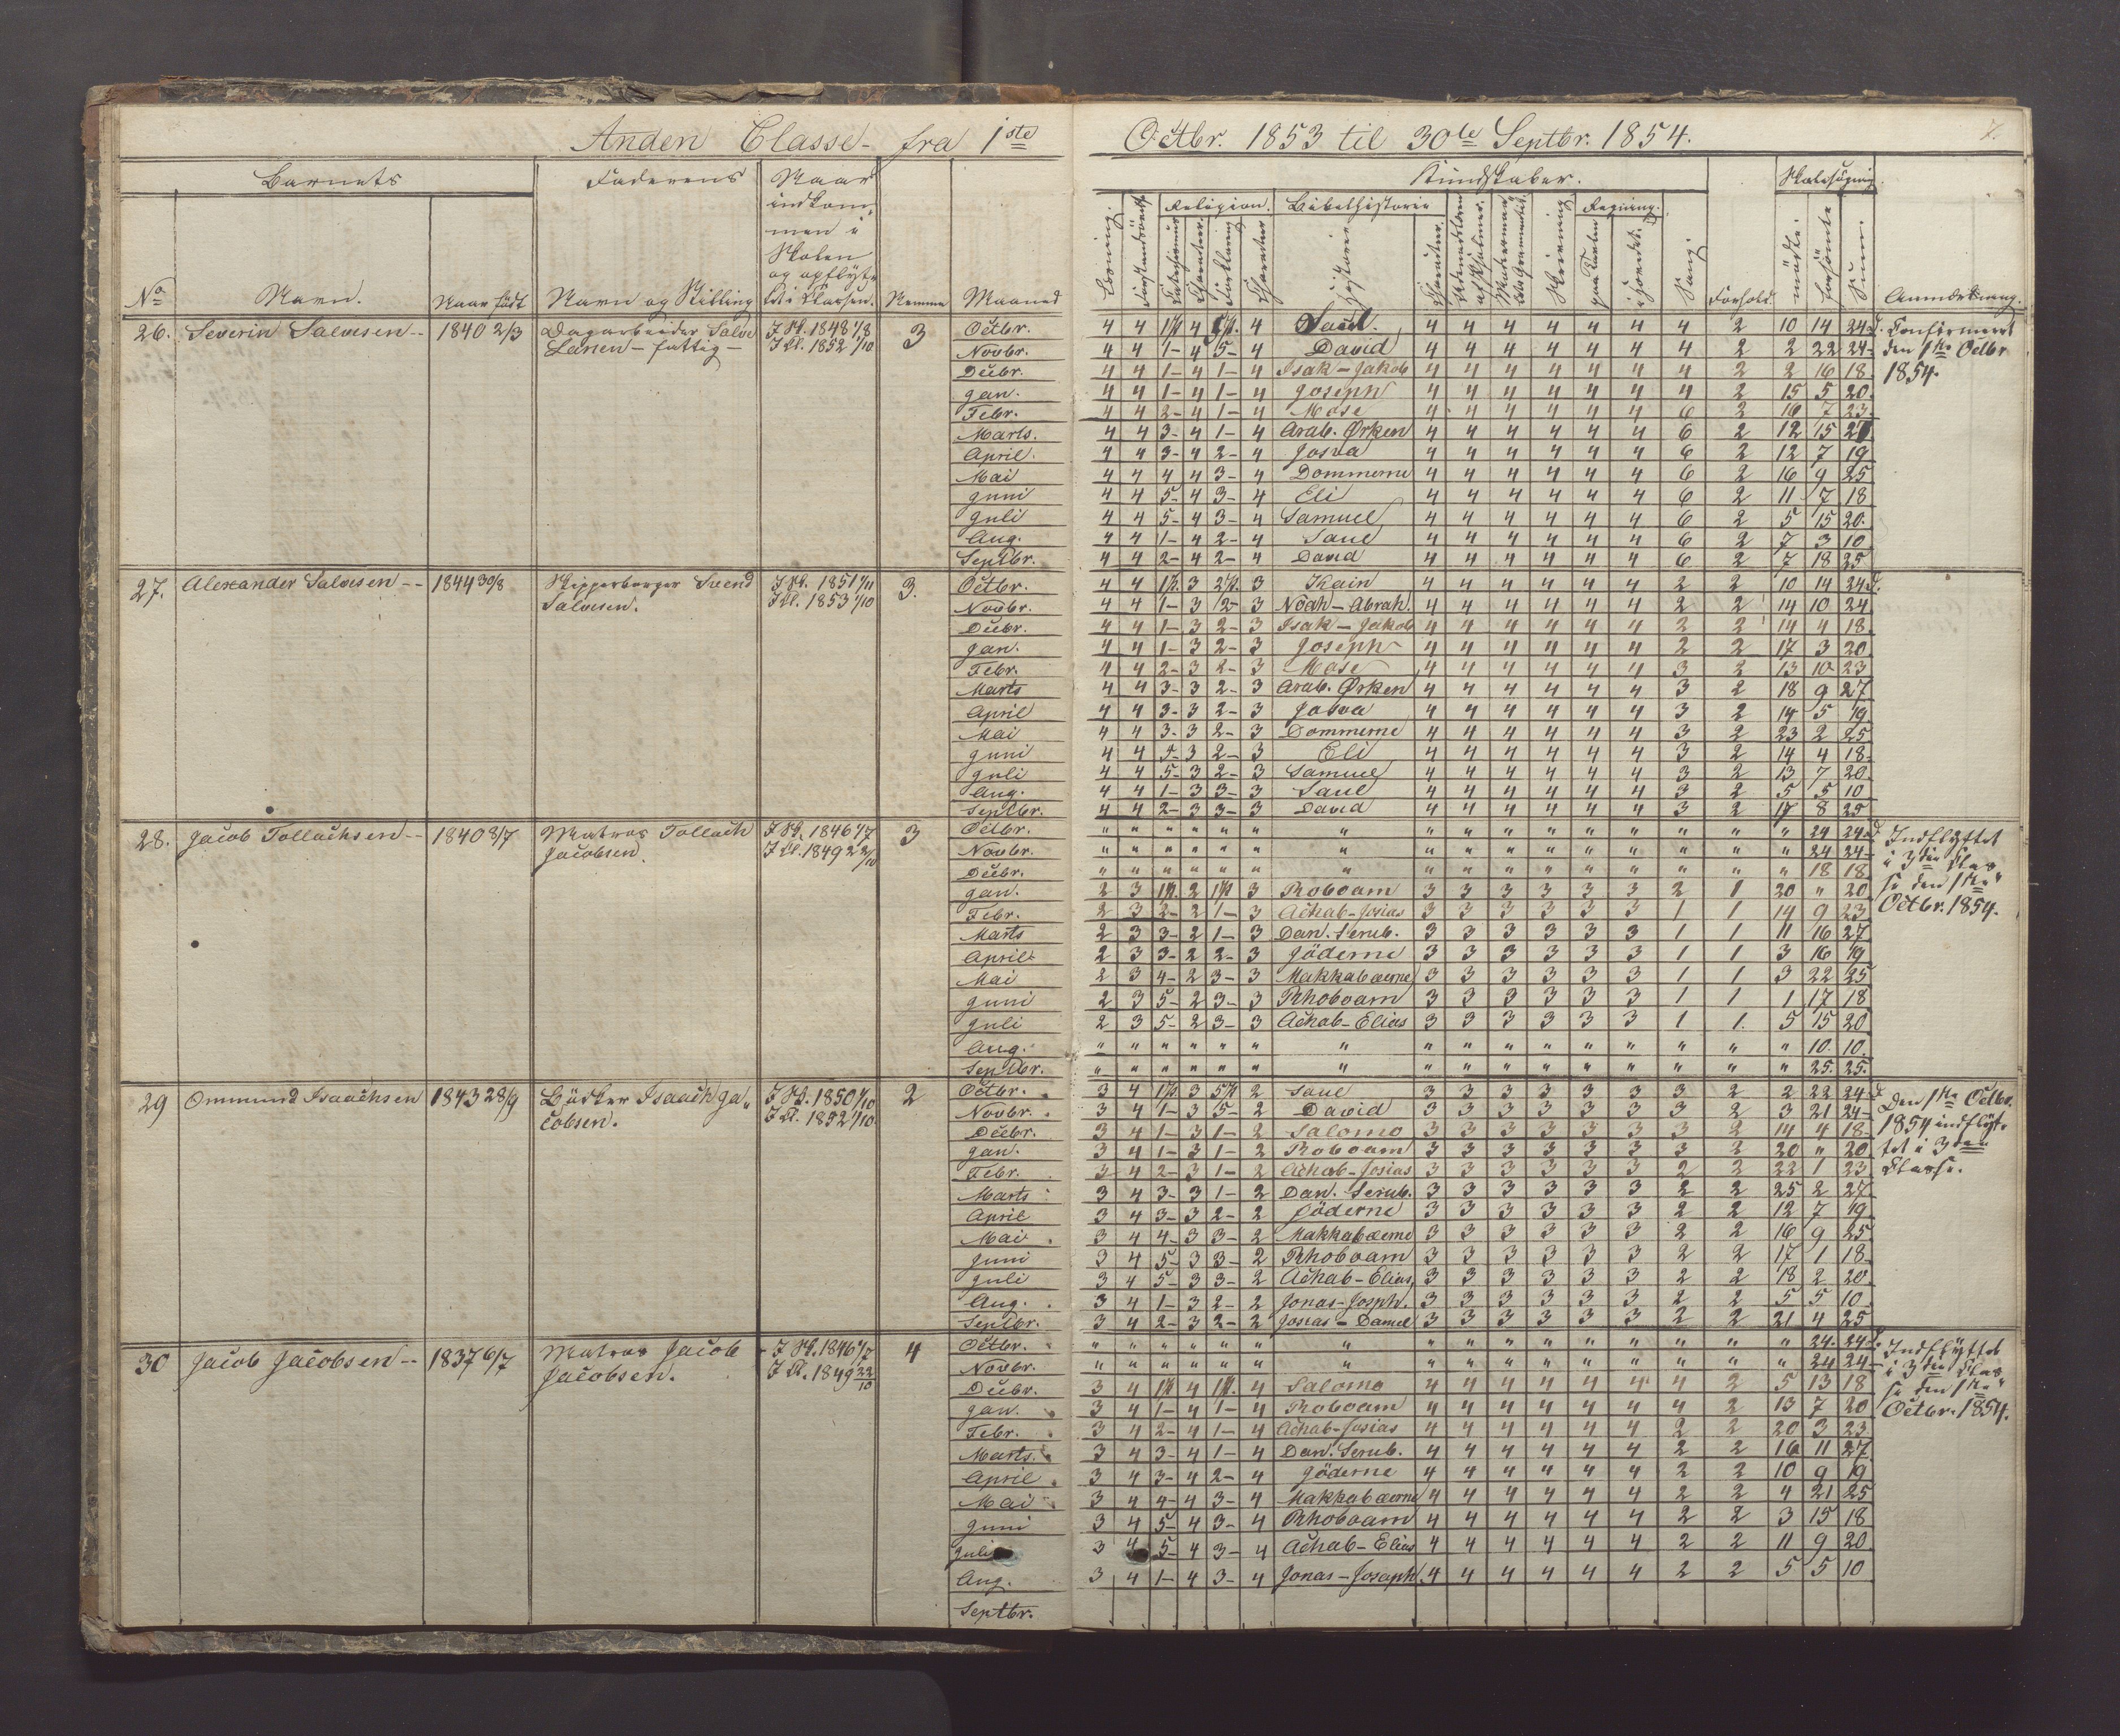 Anden Classe fra 1ste Octbr. 1853 til 30te Septbr. 1854.
7.
Barnets
Faderens
Naar indkommen i Skolen og opflyttet i Classen.
Kundskaber.
Skolesøgning.
Religion. Bibelhistorie Regning.
No Navn. Naar født Navn og Stilling Nemme Maaned
Læsning. Forklaring Charakter Historie Charakter Skrivning paa Tavlen i Hovedet. Sang. Forhold. mødte. forsømte Sum. Anmærkning.
26. Severin Salvesen -- 1840 2/3 Dagarbeider Salve Larsen - fattig - I Sk. 1848 1/8 I Cl. 1852 1/10 3
Octbr. 4 4 1 P. 4 5 P. 4 Saul. 4 4 4 4 4 4 4 2 10 14 24 d.
Novbr. 4 4 1- 4 5- 4 David 4 4 4 4 4 4 4 2 2 22 24-
Decbr. 4 4 1- 4 1- 4 Isak - Jakob 4 4 4 4 4 4 4 2 2 16 18.
Jan. 4 4 1- 4 1- 4 Joseph 4 4 4 4 4 4 4 2 15 5 20.
Febr. 4 4 2- 4 1- 4 Mose 4 4 4 4 4 4 6 2 16 7 23.
Marts. 4 4 3- 4 1- 4 Arab. Ørken 4 4 4 4 4 4 6 2 12 15 27
April. 4 4 3- 4 2- 4 Josva 4 4 4 4 4 4 6 2 12 7 19
Mai 4 4 4 4 3- 4 Dommerne 4 4 4 4 4 4 6 2 16 9 25
Juni 4 4 5- 4 3- 4 Eli 4 4 4 4 4 4 6 2 11 7 18
Juli 4 4 5- 4 3- 4 Samuel 4 4 4 4 4 4 6 2 5 15 20.
Aug. 4 4 1- 4 2- 4 Saul 4 4 4 4 4 4 6 2 7 3 10
Septbr. 4 4 2- 4 2- 4 David 4 4 4 4 4 4 6 2 7 18 25
Confirmeret
den 1ste Octbr
1854.
27. Alexander Salvesen -- 1844 30/8 Skipperborger Svend Salvesen. I Sk. 1851 1/11 I Cl. 1853 1/10 3.
Octbr. 4 4 1 P. 3 2 P. 3 Kain 4 4 4 4 4 4 2 2 10 14 24 d.
Novbr. 4 4 1- 3 2- 3 Noah - Abrah. 4 4 4 4 4 4 2 2 14 10 24
Decbr. 4 4 1- 3 2- 3 Isak - Jakob 4 4 4 4 4 4 2 2 14 4 18.
Jan. 4 4 1- 3 2- 3 Joseph 4 4 4 4 4 4 2 2 17 3 20.
Febr. 4 4 2- 3 2- 3 Mose 4 4 4 4 4 4 3 2 13 10 23
Marts 4 4 3- 3 2- 3 Arab. Ørken 4 4 4 4 4 4 3 2 18 9 27
April 4 4 3- 3 2- 3 Josva 4 4 4 4 4 4 3 2 14 5 19.
Mai 4 4 3- 3 2- 3 Dommerne 4 4 4 4 4 4 3 2 23 2 25
Juni 4 4 5- 3 2- 3 Eli 4 4 4 4 4 4 3 2 14 4 18-
Juli 4 4 5- 3 2- 3 Samuel 4 4 4 4 4 4 3 2 13 7 20.
Aug. 4 4 1- 3 3- 3 Saul 4 4 4 4 4 4 3 2 5 5 10
Septbr. 4 4 2- 3 3- 3 David 4 4 4 4 4 4 3 2 17 8 25
28. Jacob Tollachsen -- 1840 8/7 Matros Tollach Jacobsen. I Sk. 1846 1/7 I Cl. 1849 22/10 3
Octbr. " " " " " " " " " " " " " " " " 24 24 d
Novbr. " " " " " " " " " " " " " " " " 24 24-
Decbr. " " " " " " " " " " " " " " " " 18 18.
Jan. 2 3 1 P. 2 1 P. 3 Roboam 3 3 3 3 3 3 2 1 20 " 20
Febr. 2 3 2- 2 1- 3 Achab-Josias 3 3 3 3 3 3 1 1 14 9 23
Marts 2 3 3- 2 1- 3 Dan. Serub. 3 3 3 3 3 3 1 1 11 16 27
April 2 3 3- 2 2- 3 Jöderne 3 3 3 3 3 3 1 1 3 16 19
Mai 2 3 4- 2 3- 3 Makkabæerne 3 3 3 3 3 3 1 1 3 22 25
Juni 2 3 5- 2 3- 3 Rhoboam 3 3 3 3 3 3 1 1 1 17 18
Juli 2 3 5- 2 3- 3 Achab-Elias 3 3 3 3 3 3 1 1. 5 15 20
Aug. " " " " " " " " " " " " " " " " 10. 10.
Septbr. " " " " " " " " " " " " " " " " 25. 25.
Indflyttet
i 3die Clas
se den 1ste
Octbr. 1854.
29 Ommund Isaachsen 1843 28/9 Bödker Isaach Jacobsen. I Sk. 1850 1/10 I Cl. 1852 1/10 2
Octbr. 3 4 1 P. 3 5 P. 2 Saul 3 3 3 3 3 3 3 2 2 22 24 d
Novbr. 3 4 1- 3 5- 2 David 3 3 3 3 3 3 3 2 3 21 24-
Decbr. 3 4 1- 3 1- 2 Salomo 3 3 3 3 3 3 3 2 14 4 18-
Jan. 3 4 1- 3 1- 2 Roboam 3 3 3 3 3 3 3 2 20 " 20
Febr. 3 4 2- 3 1- 2 Achab-Josias 3 3 3 3 3 3 2 2 22 1 23
Marts 3 4 3- 3 1- 2 Dan. Serub. 3 3 3 3 3 3 2 2 25 2 27.
April 3 4 3- 3 2- 2 Jöderne 3 3 3 3 3 3 2 2 12 7 19.
Mai 3 4 4- 3 3- 2 Makkabæerne 3 3 3 3 3 3 2 2 16 9 25
Juni 3 4 5- 3 3- 2 Rhoboam 3 3 3 3 3 3 2 2 17 1 18
Juli 3 4 5- 3 3- 2 Achab-Elias, 3 3 3 3 3 3 2 2 18 2 20
Aug. 3 4 1- 3 2- 2 Jonas-Josph. 3 3 3 3 3 3 2 2 5 5 10
Septbr. 3 4 2- 3 2- 2 Josias-Daniel 3 3 3 3 3 3 2 2 21 4 25
Den 1ste Octbr.
1854 indflyt-
tet i 3die
Classe.
30 Jacob Jacobsen -- 1837 6/7 Matros Jacob Jacobsen. I Sk. 1846 1/7 I Cl. 1849 22/10 4
Octbr. " " " " " " " " " " " " " " " " 24. 24 d.
Novbr. " " " " " " " " " " " " " " " " 24 24-
Decbr. 3 4 1 P. 4 1 P. 4 Salomo 4 4 4 4 4 4 4 2 5 13 18
Jan. 3 4 1- 4 1- 4 Roboam 4 4 4 4 4 4 4 2 13 7 20
Febr. 3 4 2- 4 1- 4 Achab-Josias 4 4 4 4 4 4 2 2 20 3 23
Marts. 3 4 3- 4 1- 4 Dan. Serub. 4 4 4 4 4 4 2 2 16 11 27
April 3 4 3- 4 2- 4 Jöderne 4 4 4 4 4 4 2 2 10 9 19
Mai 3 4 4- 4 3- 4 Makkabæerne 4 4 4 4 4 4 2 2 4 21 25
Juni 3 4 5- 4 3- 4 Rhoboam 4 4 4 4 4 4 2 2 3 15 18
Juli 3 4 5- 4 3- 4 Achab-Elias 4 4 4 4 4 4 2 2 11 9 20
Aug. 3 4 1- 4 3- 4 Jonas-Joseph. 4 4 4 4 4 4 2 2 5 5 10
Septbr.
Indflyttet
i 3die Clas
se den 1ste
Octbr. 1854.